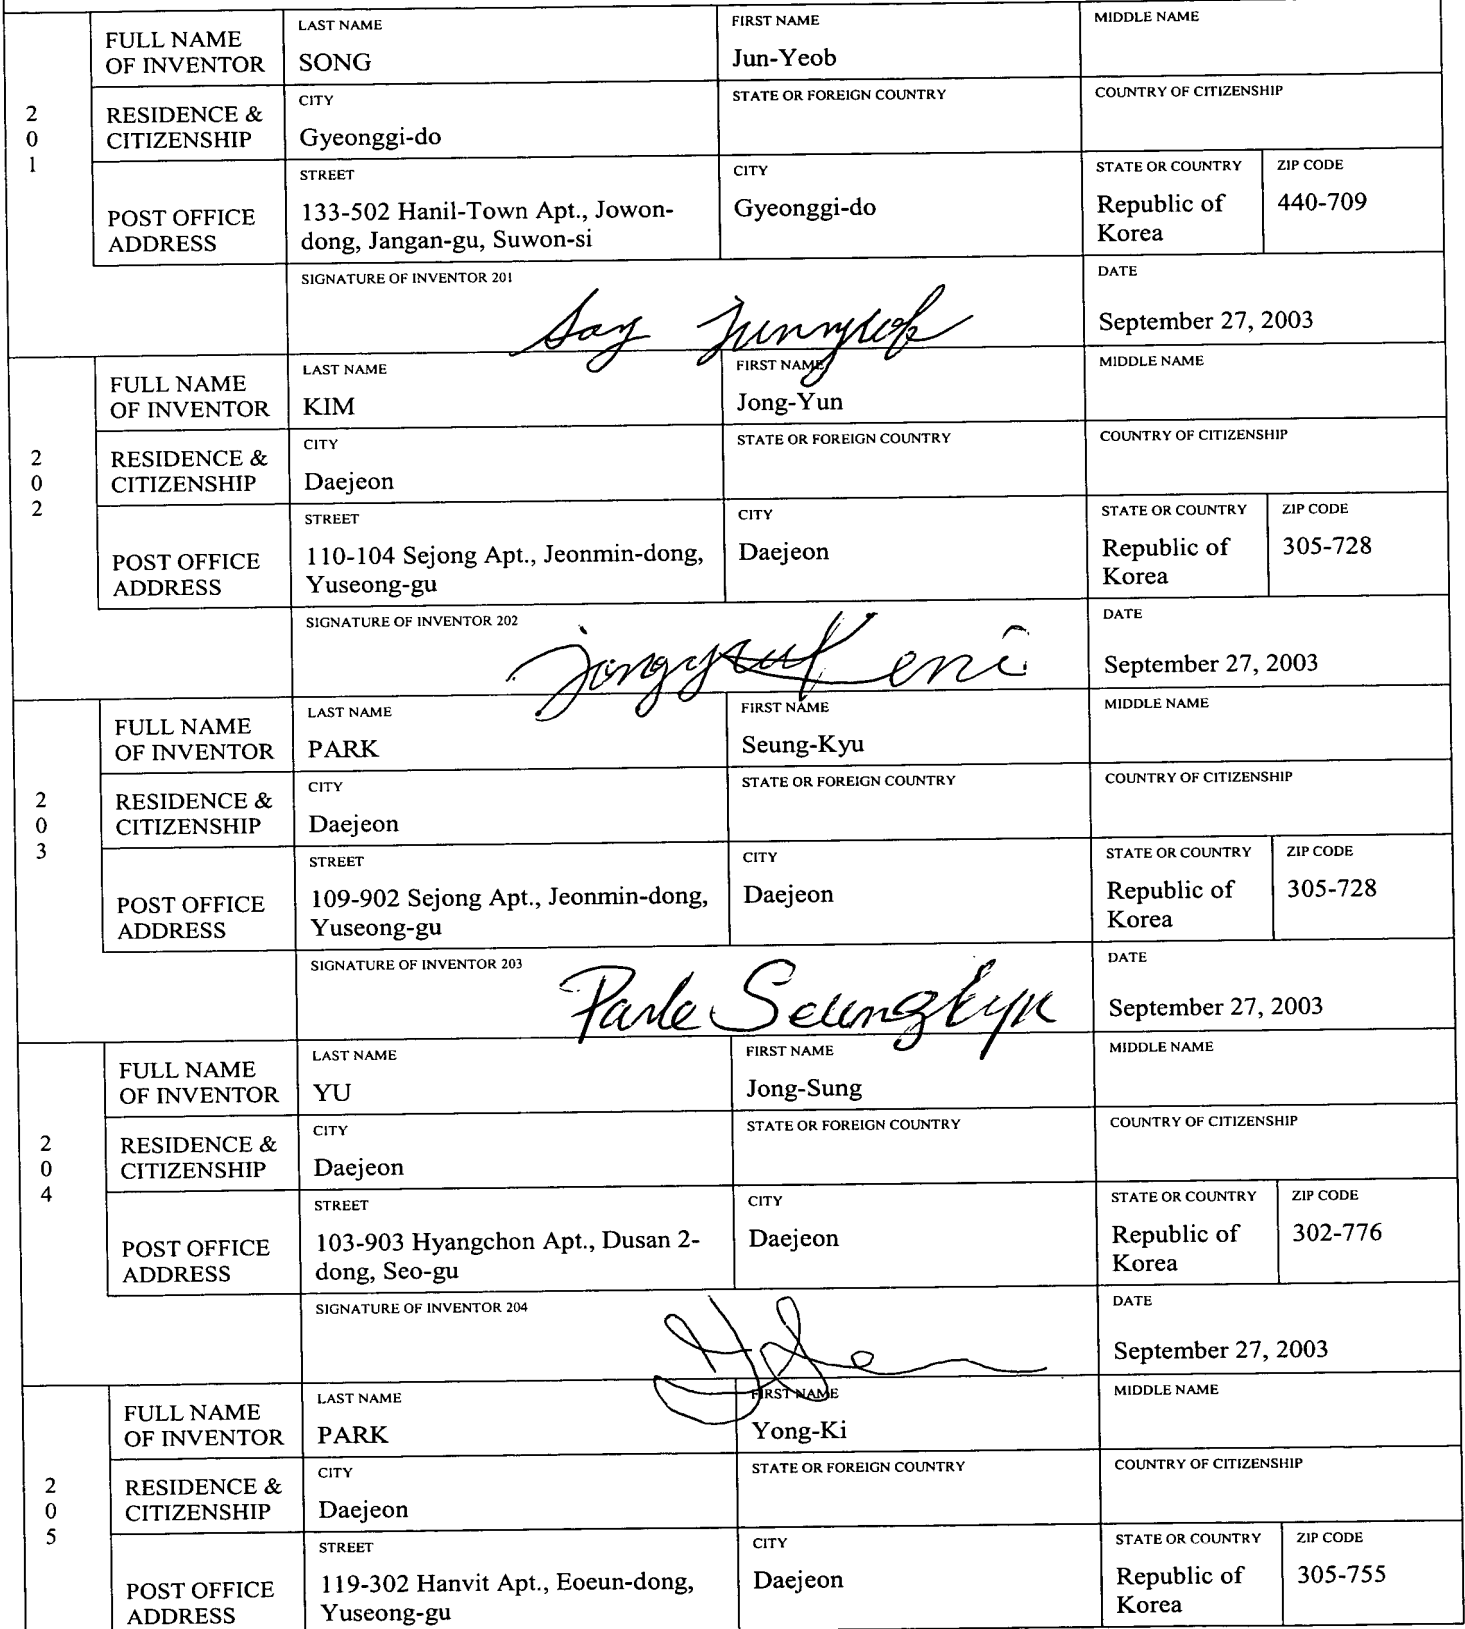 2
0
1
FULL NAME
OF INVENTOR
LAST NAME
SONG
FIRST NAME
Jun-Yeob
MIDDLE NAME
RESIDENCE &
CITIZENSHIP
CITY
Gyeonggi-do
STATE OR FOREIGN COUNTRY
COUNTRY OF CITIZENSHIP
POST OFFICE
ADDRESS
STREET
133-502 Hanil-Town Apt., Jowon-
dong, Jangan-gu, Suwon-si
CITY
Gyeonggi-do
STATE OR COUNTRY
Republic of
Korea
ZIP CODE
440-709
SIGNATURE OF INVENTOR 201
DATE
September 27, 2003
2
0
2
FULL NAME
OF INVENTOR
LAST NAME
KIM
FIRST NAME
Jong-Yun
MIDDLE NAME
RESIDENCE &
CITIZENSHIP
CITY
Daejeon
STATE OR FOREIGN COUNTRY
COUNTRY OF CITIZENSHIP
POST OFFICE
ADDRESS
STREET
110-104 Sejong Apt., Jeonmin-dong,
Yuseong-gu
CITY
Daejeon
STATE OR COUNTRY
Republic of
Korea
ZIP CODE
305-728
SIGNATURE OF INVENTOR 202
DATE
September 27, 2003
2
0
3
FULL NAME
OF INVENTOR
LAST NAME
PARK
FIRST NAME
Seung-Kyu
MIDDLE NAME
RESIDENCE &
CITIZENSHIP
CITY
Daejeon
STATE OR FOREIGN COUNTRY
COUNTRY OF CITIZENSHIP
POST OFFICE
ADDRESS
STREET
109-902 Sejong Apt., Jeonmin-dong,
Yuseong-gu
CITY
Daejeon
STATE OR COUNTRY
Republic of
Korea
ZIP CODE
305-728
SIGNATURE OF INVENTOR 203
Park Seungkyu
DATE
September 27, 2003
2
0
4
FULL NAME
OF INVENTOR
LAST NAME
YU
FIRST NAME
Jong-Sung
MIDDLE NAME
RESIDENCE &
CITIZENSHIP
CITY
Daejeon
STATE OR FOREIGN COUNTRY
COUNTRY OF CITIZENSHIP
POST OFFICE
ADDRESS
STREET
103-903 Hyangchon Apt., Dusan 2-
dong, Seo-gu
CITY
Daejeon
STATE OR COUNTRY
Republic of
Korea
ZIP CODE
302-776
SIGNATURE OF INVENTOR 204
DATE
September 27, 2003
2
0
5
FULL NAME
OF INVENTOR
LAST NAME
PARK
FIRST NAME
Yong-Ki
MIDDLE NAME
RESIDENCE &
CITIZENSHIP
CITY
Daejeon
STATE OR FOREIGN COUNTRY
COUNTRY OF CITIZENSHIP
POST OFFICE
ADDRESS
STREET
119-302 Hanvit Apt., Eoeun-dong,
Yuseong-gu
CITY
Daejeon
STATE OR COUNTRY
Republic of
Korea
ZIP CODE
305-755